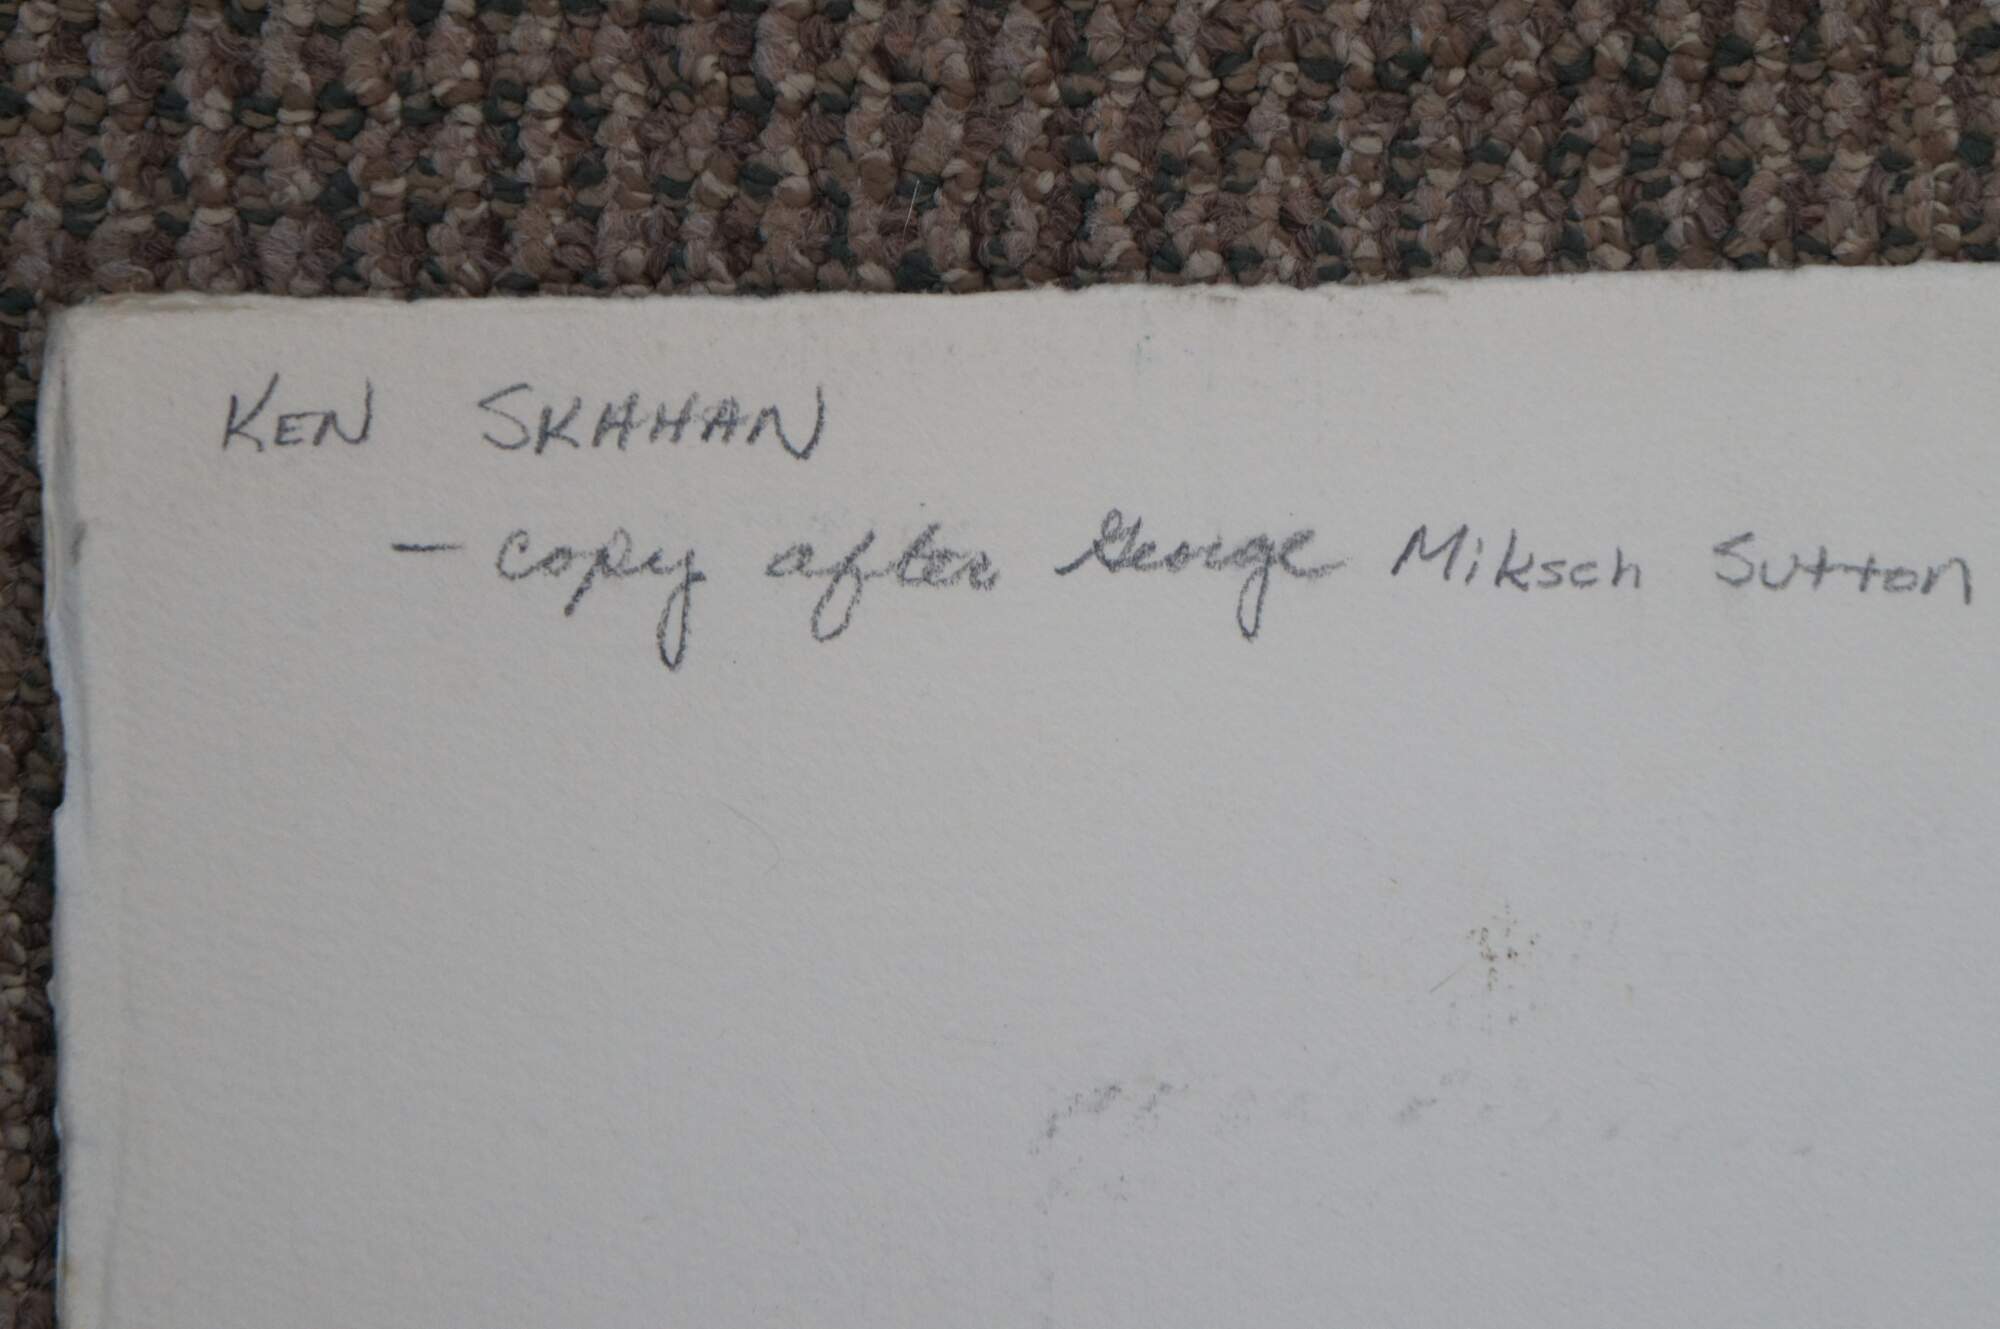 KEN SKAHAN
- copy after George Miksch Sutton